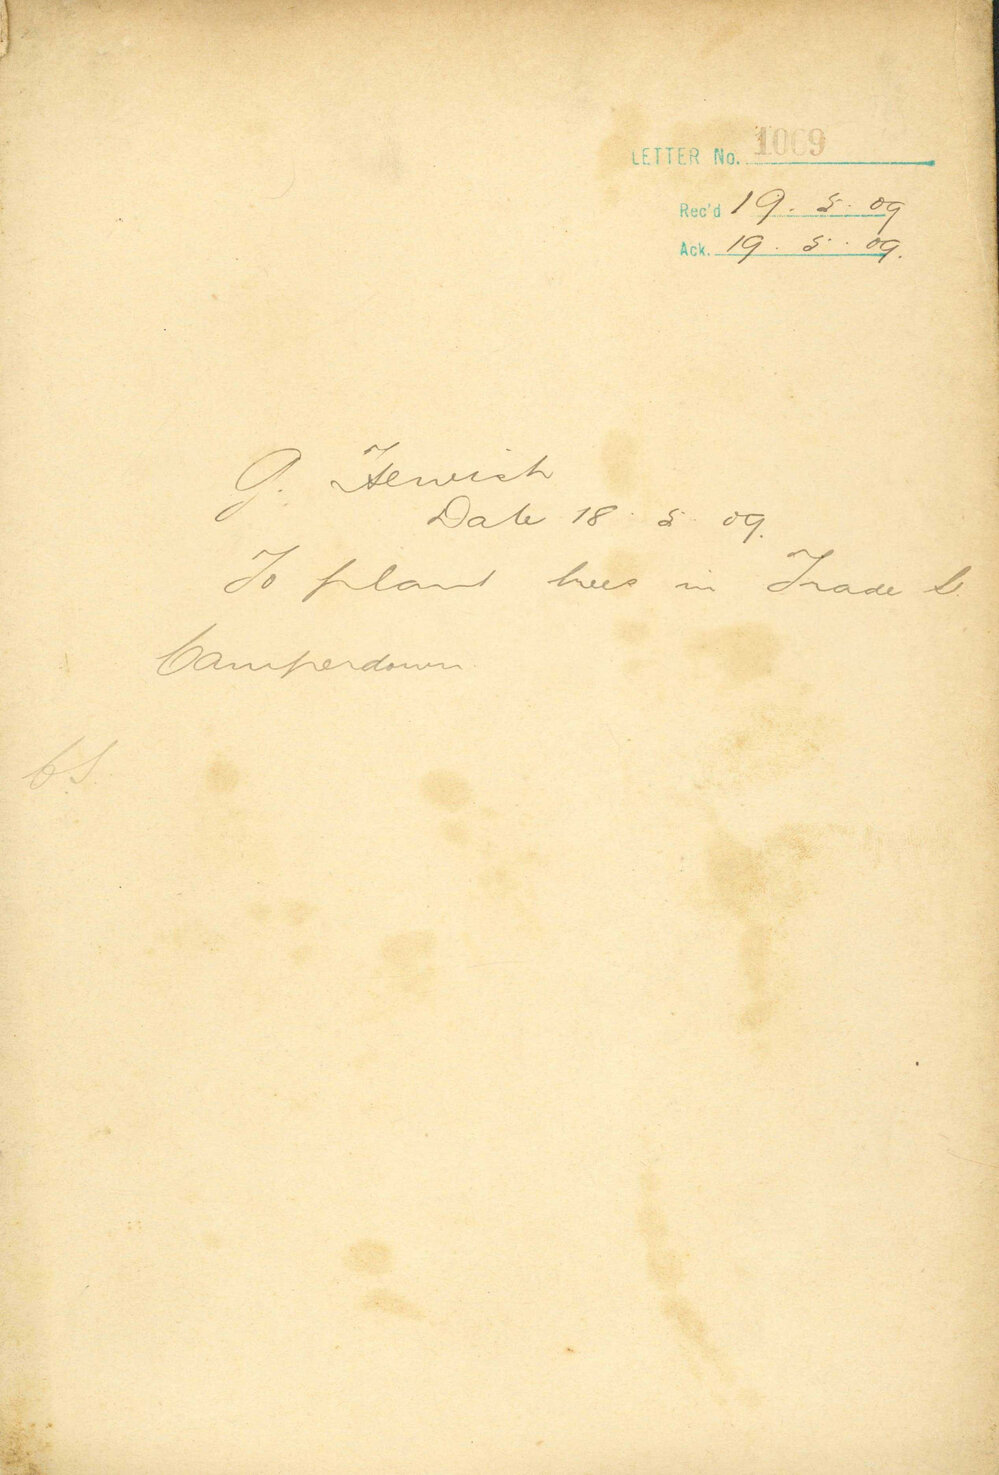 LETTER No. 1069
Rec'd 19. 5. 09
Ack. 19. 5. 09.
G. Hewish
Date 18. 5. 09.
To plant trees in Trade St.
Camperdown